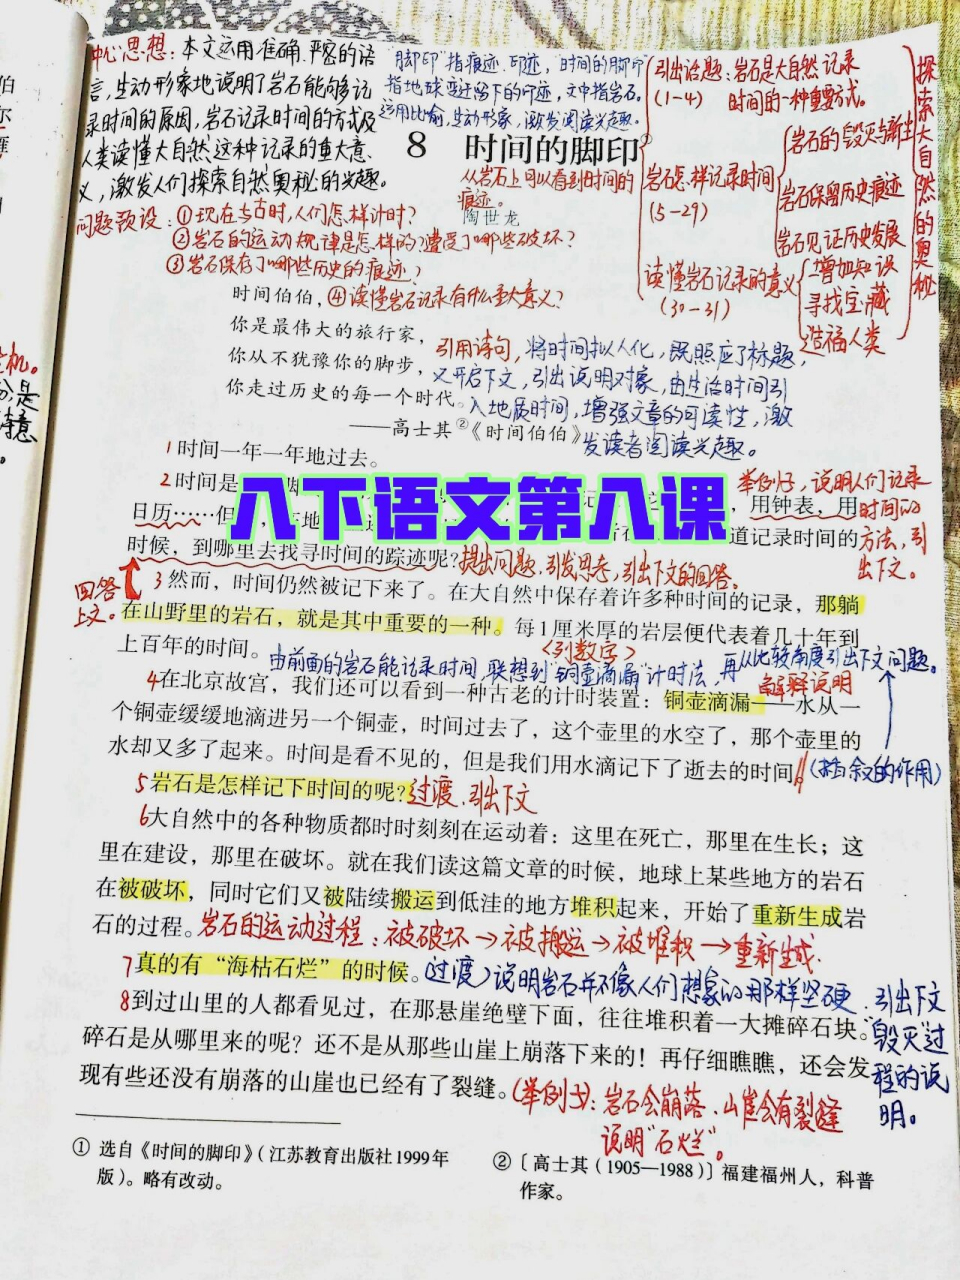 中心思想：本文运用准确.严密的语
言,生动形象地说明了岩石能够记
录时间的原因,岩石记录时间的方式及
人类读懂大自然这种记录的重大意
义,激发人们探索自然奥秘的兴趣。
"脚印"指痕迹.印迹,"时间的脚印"
指地球变迁留下的印迹,文中指岩石。
运用比喻,生动形象,激发阅读兴趣。
引出话题：岩石是大自然记录
(1-4) 时间的一种重要方式。
岩石怎样记录时间
(5-29)
岩石的毁灭与新生
岩石保留历史痕迹
岩石见证历史发展
读懂岩石记录的意义
(30-31)
增加知识
寻找宝藏
造福人类
探索大自然的奥秘
8 时间的脚印①
从岩石上可以看到时间的
痕迹。
陶世龙
问题预设：①现在与古时,人们怎样计时?
②岩石的运动规律是怎样的?遭受了哪些破坏?
③岩石保存了哪些历史的痕迹?
④读懂岩石记录有什么重大意义?
时间伯伯，
你是最伟大的旅行家，
你从不犹豫你的脚步，
你走过历史的每一个时代。
——高士其②《时间伯伯》
引用诗句,将时间拟人化,既照应了标题,
又开启下文,引出说明对象,由生活时间引
入地质时间,增强文章的可读性,激
发读者阅读兴趣。
1 时间一年一年地过去。
2 时间是
用钟表，用
日历……但
道记录时间的
时候，到哪里去找寻时间的踪迹呢?
举例子,说明人们记录
时间的
方法,引
出下文。
八下语文第八课
提出问题.引发思考,引出下文的回答。
回答
上文。
3 然而，时间仍然被记下来了。在大自然中保存着许多种时间的记录，那躺
在山野里的岩石，就是其中重要的一种。每1厘米厚的岩层便代表着几十年到
上百年的时间。
〈列数字〉
由前面的岩石能记录时间,联想到"铜壶滴漏"计时法,再从比较角度引出下文问题。
解释说明
4 在北京故宫，我们还可以看到一种古老的计时装置：铜壶滴漏——水从一
个铜壶缓缓地滴进另一个铜壶，时间过去了，这个壶里的水空了，那个壶里的
水却又多了起来。时间是看不见的，但是我们用水滴记下了逝去的时间。
(插叙的作用)
5 岩石是怎样记下时间的呢? 过渡.引出下文
6 大自然中的各种物质都时时刻刻在运动着：这里在死亡，那里在生长；这
里在建设，那里在破坏。就在我们读这篇文章的时候，地球上某些地方的岩石
在被破坏，同时它们又被陆续搬运到低洼的地方堆积起来，开始了重新生成岩
石的过程。
岩石的运动过程：被破坏→被搬运→被堆积→重新生成.
7 真的有“海枯石烂”的时候。
(过渡)说明岩石并不像人们想象的那样坚硬.引出下文
"毁灭过
程的说
明。
8 到过山里的人都看见过，在那悬崖绝壁下面，往往堆积着一大摊碎石块。
碎石是从哪里来的呢？还不是从那些山崖上崩落下来的！再仔细瞧瞧，还会发
现有些还没有崩落的山崖也已经有了裂缝。
(举例子)：岩石会崩落.山崖会有裂缝
说明"石烂"。
① 选自《时间的脚印》（江苏教育出版社1999年
版）。略有改动。
② 〔高士其（1905—1988）〕福建福州人，科普
作家。